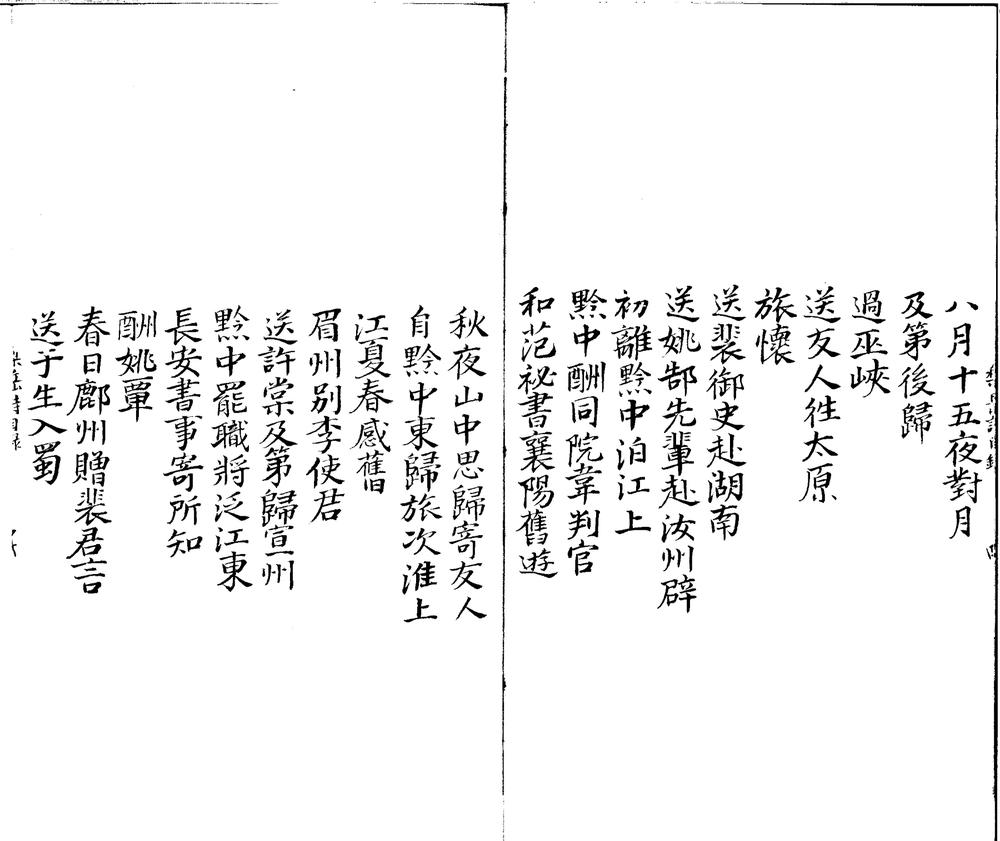 八月十五夜對月
及第後歸
過巫峽
送友人徃太原
旅懷
送裴御史赴湖南
送姚郜先輩赴汝州辟
初離黔中泊江上
黔中酬同院韋判官
和范祕書襄陽舊遊
秋夜山中思歸寄友人
自黔中東歸旅次淮上
江夏春感舊
眉州別李使君
送許棠及第歸宣州
黔中罷職將泛江東
長安書事寄所知
酬姚覃
春日鄜州贈裴君言
送于生入蜀